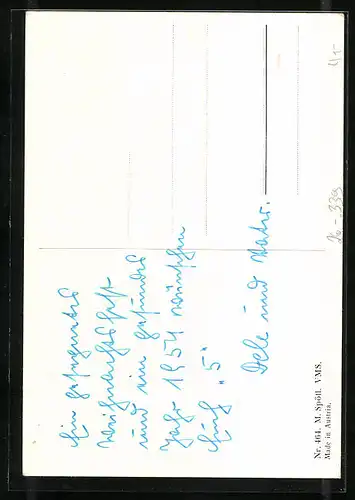 Ein gesegnetes
Weihnachtsfest
und ein gesundes
Jahr 1954 wünschen
Euch „5"
Dele und Vater.
Nr. 464. M. Spötl. VMS.
Made in Austria.
26 - 339
4,-